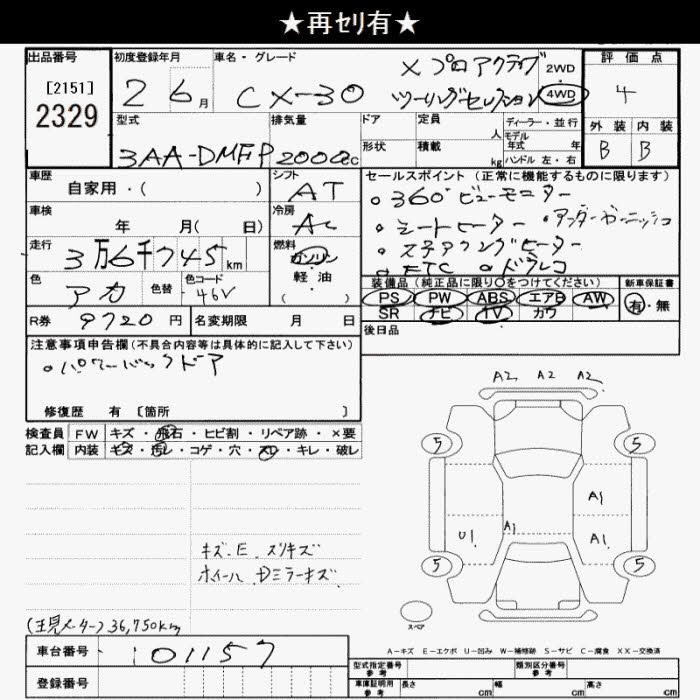 ★再セリ有★
出品番号
[2151]
2329
初度登録年月
2 6月
車名・グレード
CX-30
Xプロアクティブ
ツーリングセレクション
2WD
4WD
評価点
4
外装 内装
B B
型式
3AA-DMFP
排気量
2000cc
ドア
形状
定員
人
積載
kg
ディーラー・並行
モデル
年式 年
ハンドル 左・右
車歴
自家用・( )
シフト
AT
車検
年 月( 日)
冷房
AC
走行
3万6千745km
燃料
ガソリン
軽油
( )
色
アカ
色替
色コード
46V
R券 9720円
名変期限 月 日
セールスポイント(正常に機能するものに限ります)
。360°ビューモニター
。シートヒーター ・アンダーガーニッシュ
。ステアリングヒーター
。ETC 。ドラレコ
装備品(純正品に限り○をつけてください)
PS PW ABS エアB AW
SR ナビ TV カワ
新車保証書
有・無
後日品
注意事項申告欄(不具合内容等は具体的に記入して下さい)
。パワーバックドア
修復歴 有 〔箇所 〕
検査員
記入欄
FW キズ・飛石・ヒビ割・リペア跡・×要
内装 キズ・汚レ・コゲ・穴・スレ・キレ・破レ
キズ.E.スリキズ
ホイール、Dミラーキズ
A2 A2 A2
5 5
A1
U1 A1 A1
5 5
スペア
(現メーター)36,750km
A-キズ E-エクボ U-凹み W-補修跡 S-サビ C-腐食 XX-交換済
車台番号 101157
登録番号
型式指定番号
参考
類別区分番号
参考
車庫証明用
参考
長さ cm
幅 cm
高さ cm